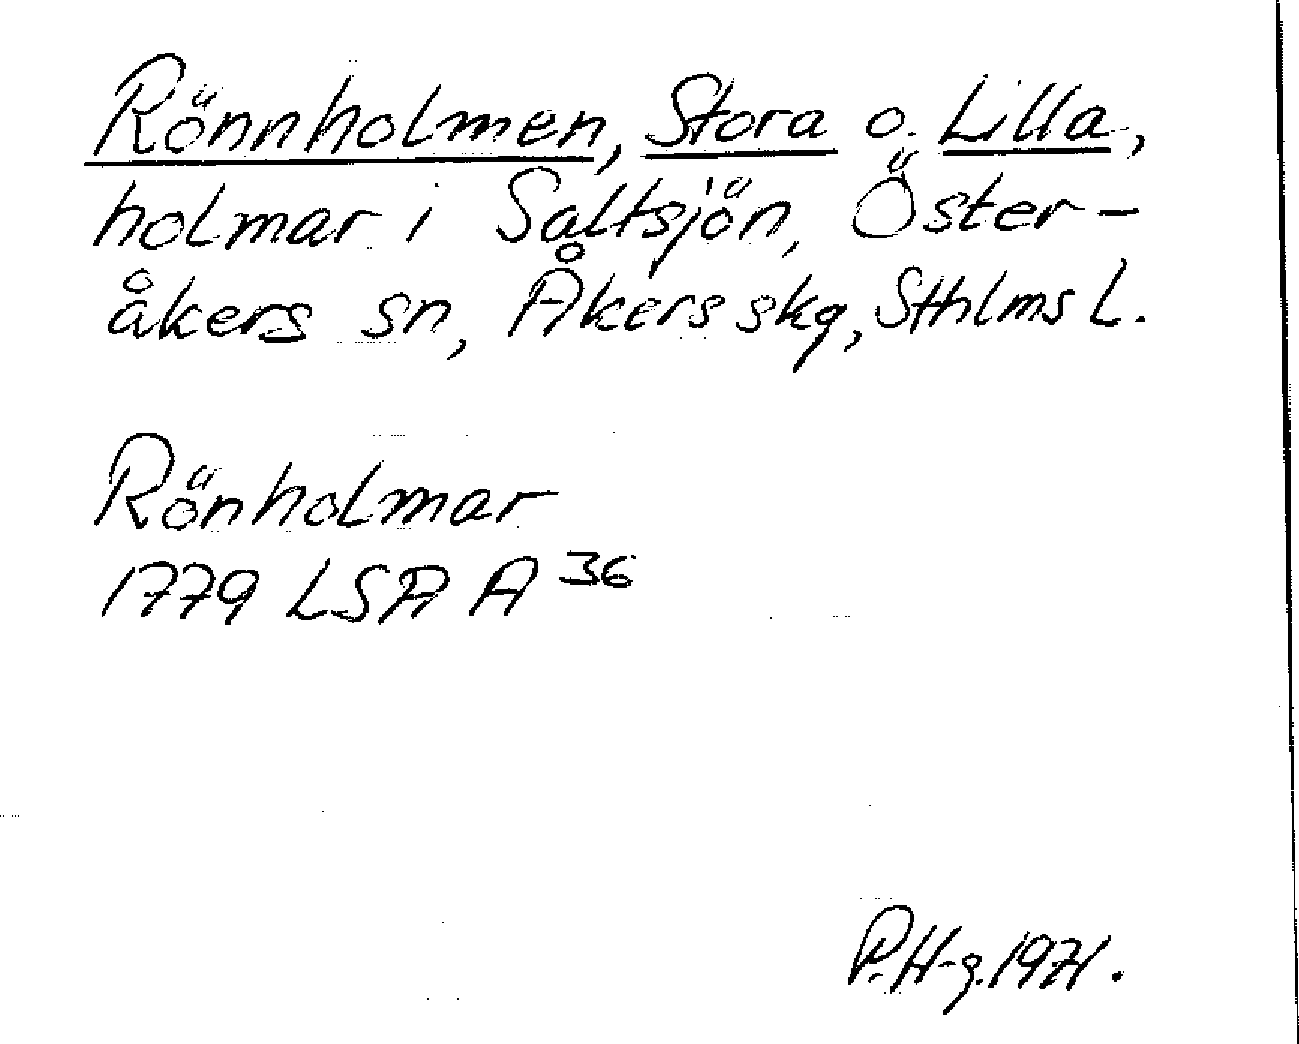 Rönnholmen, Stora o. Lilla,
holmar i Saltsjön, Öster-
åkers sn, Åkers skg, Sthlms L.
Rönholmar
1779 LSA A 36
P. H-g. 1971.